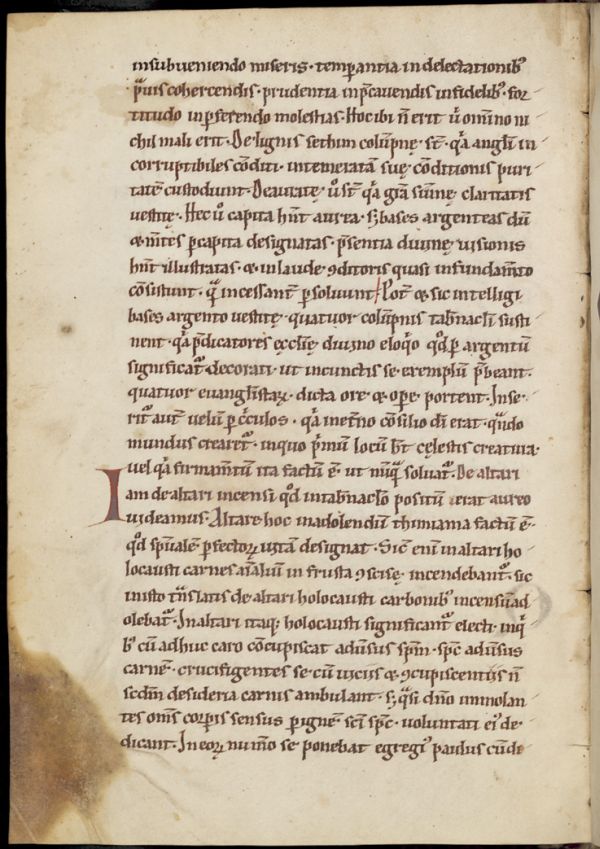 insubueniendo miseris · temꝑantia indelectationibꝰ
p̃uis cohercendis · prudentia inp̃cauendis infidelibꝰ · for
titudo inꝑferendo molestias · Hoc ibi ñ erit ů omĩno ni
chil mali erit · De lignis sethim colũpnę · st̃ · q̃a angl̃i in
corruptibiles cõditi · intemeratã suę cõditionis puri
tatẽ custodiunt · Deauratę · ů st̃ q̃a grã sũmę claritatis
uestitę · Hec ů capita hñt aurea · sꝫ bases argenteas dũ
& m̃tes ꝑcapita designatas · p̃sentia diuinę uisionis
hñt illustratas · & in laude ꝯditoris quasi in fundam̃to
cõsistunt · q̃ incessanẽ ꝑsoluunt Pot̃ & sic intelligi
bases argento uestitę · quatuor colũpnis tab̃nacl̃i susti
nent · q̃a p̃dicatores ęcclię diuino eloq̃o qd̃ ꝑ argentũ
significat᷑ decorati · ut incunctis se exemplũ p̃beant ·
quatuor euangl̃istaꝝ · dicta ore & oꝑe · portent · Inse
rit᷑ aut̃ uelũ ꝑ c̃culos · q̃a inet̃no cõsilio dĩ erat · q̃ndo
mundus crearet᷑ · inquo p̃mũ locũ hr̃t cęlestis creatura ·
uel q̃a firmam̃tũ ita factũ ẽ · ut nũq̃ soluat᷑ · De altari
Iam de altari incensi qd̃ intab̃naclo positũ erat aureo
uideamus · Altare hoc inadolendũ thimiama factũ ẽ ·
qd̃ sp̃ialẽ ꝑfectoꝝ uitã designat · Sic̃ enĩ inaltari ho
locausti carnes aĩaliũ in frusta ꝯscisę · incendebant᷑ · sic
inisto tñslatis de altari holocausti carbonibꝰ incensũ ad
olebat᷑ · Inaltari itaqꝫ holocausti significant᷑ electi · inq̃
bꝰ cũ adhuc caro cõcupiscat aduersus sp̃m · sp̃c aduersus
carnẽ · crucifigentes se cũ uiciis & ꝯcupiscentiis ñ
scđm desideria carnis ambulant · sꝫ q̃si dño immolan
tes om̃s corꝑis sensus ꝑ ignẽ · sc̃i sp̃c · uoluntati eiꝰ de
dicant · In eoꝝ numo se ponebat egregiꝰ paulus cũ di